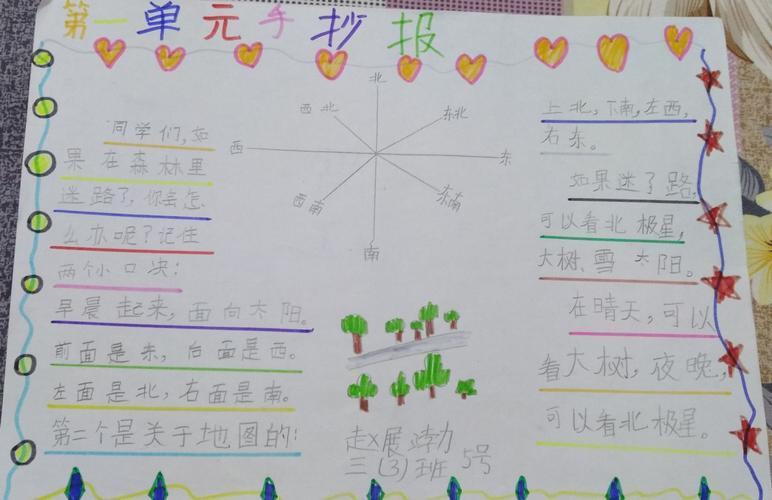 第一单元手抄报
同学们,如
果在森林里
迷路了,你会怎
么办呢?记住
两个小口决:
早晨起来,面向太阳。
前面是东,后面是西。
左面是北,右面是南。
第二个是关于地图的:
北
西北
东北
西
东
西南
东南
南
上北,下南,左西,
右东。
如果迷了路,
可以看北极星,
大树、雪太阳。
在晴天,可以
看大树,夜晚,
可以看北极星。
三(3)班 5号